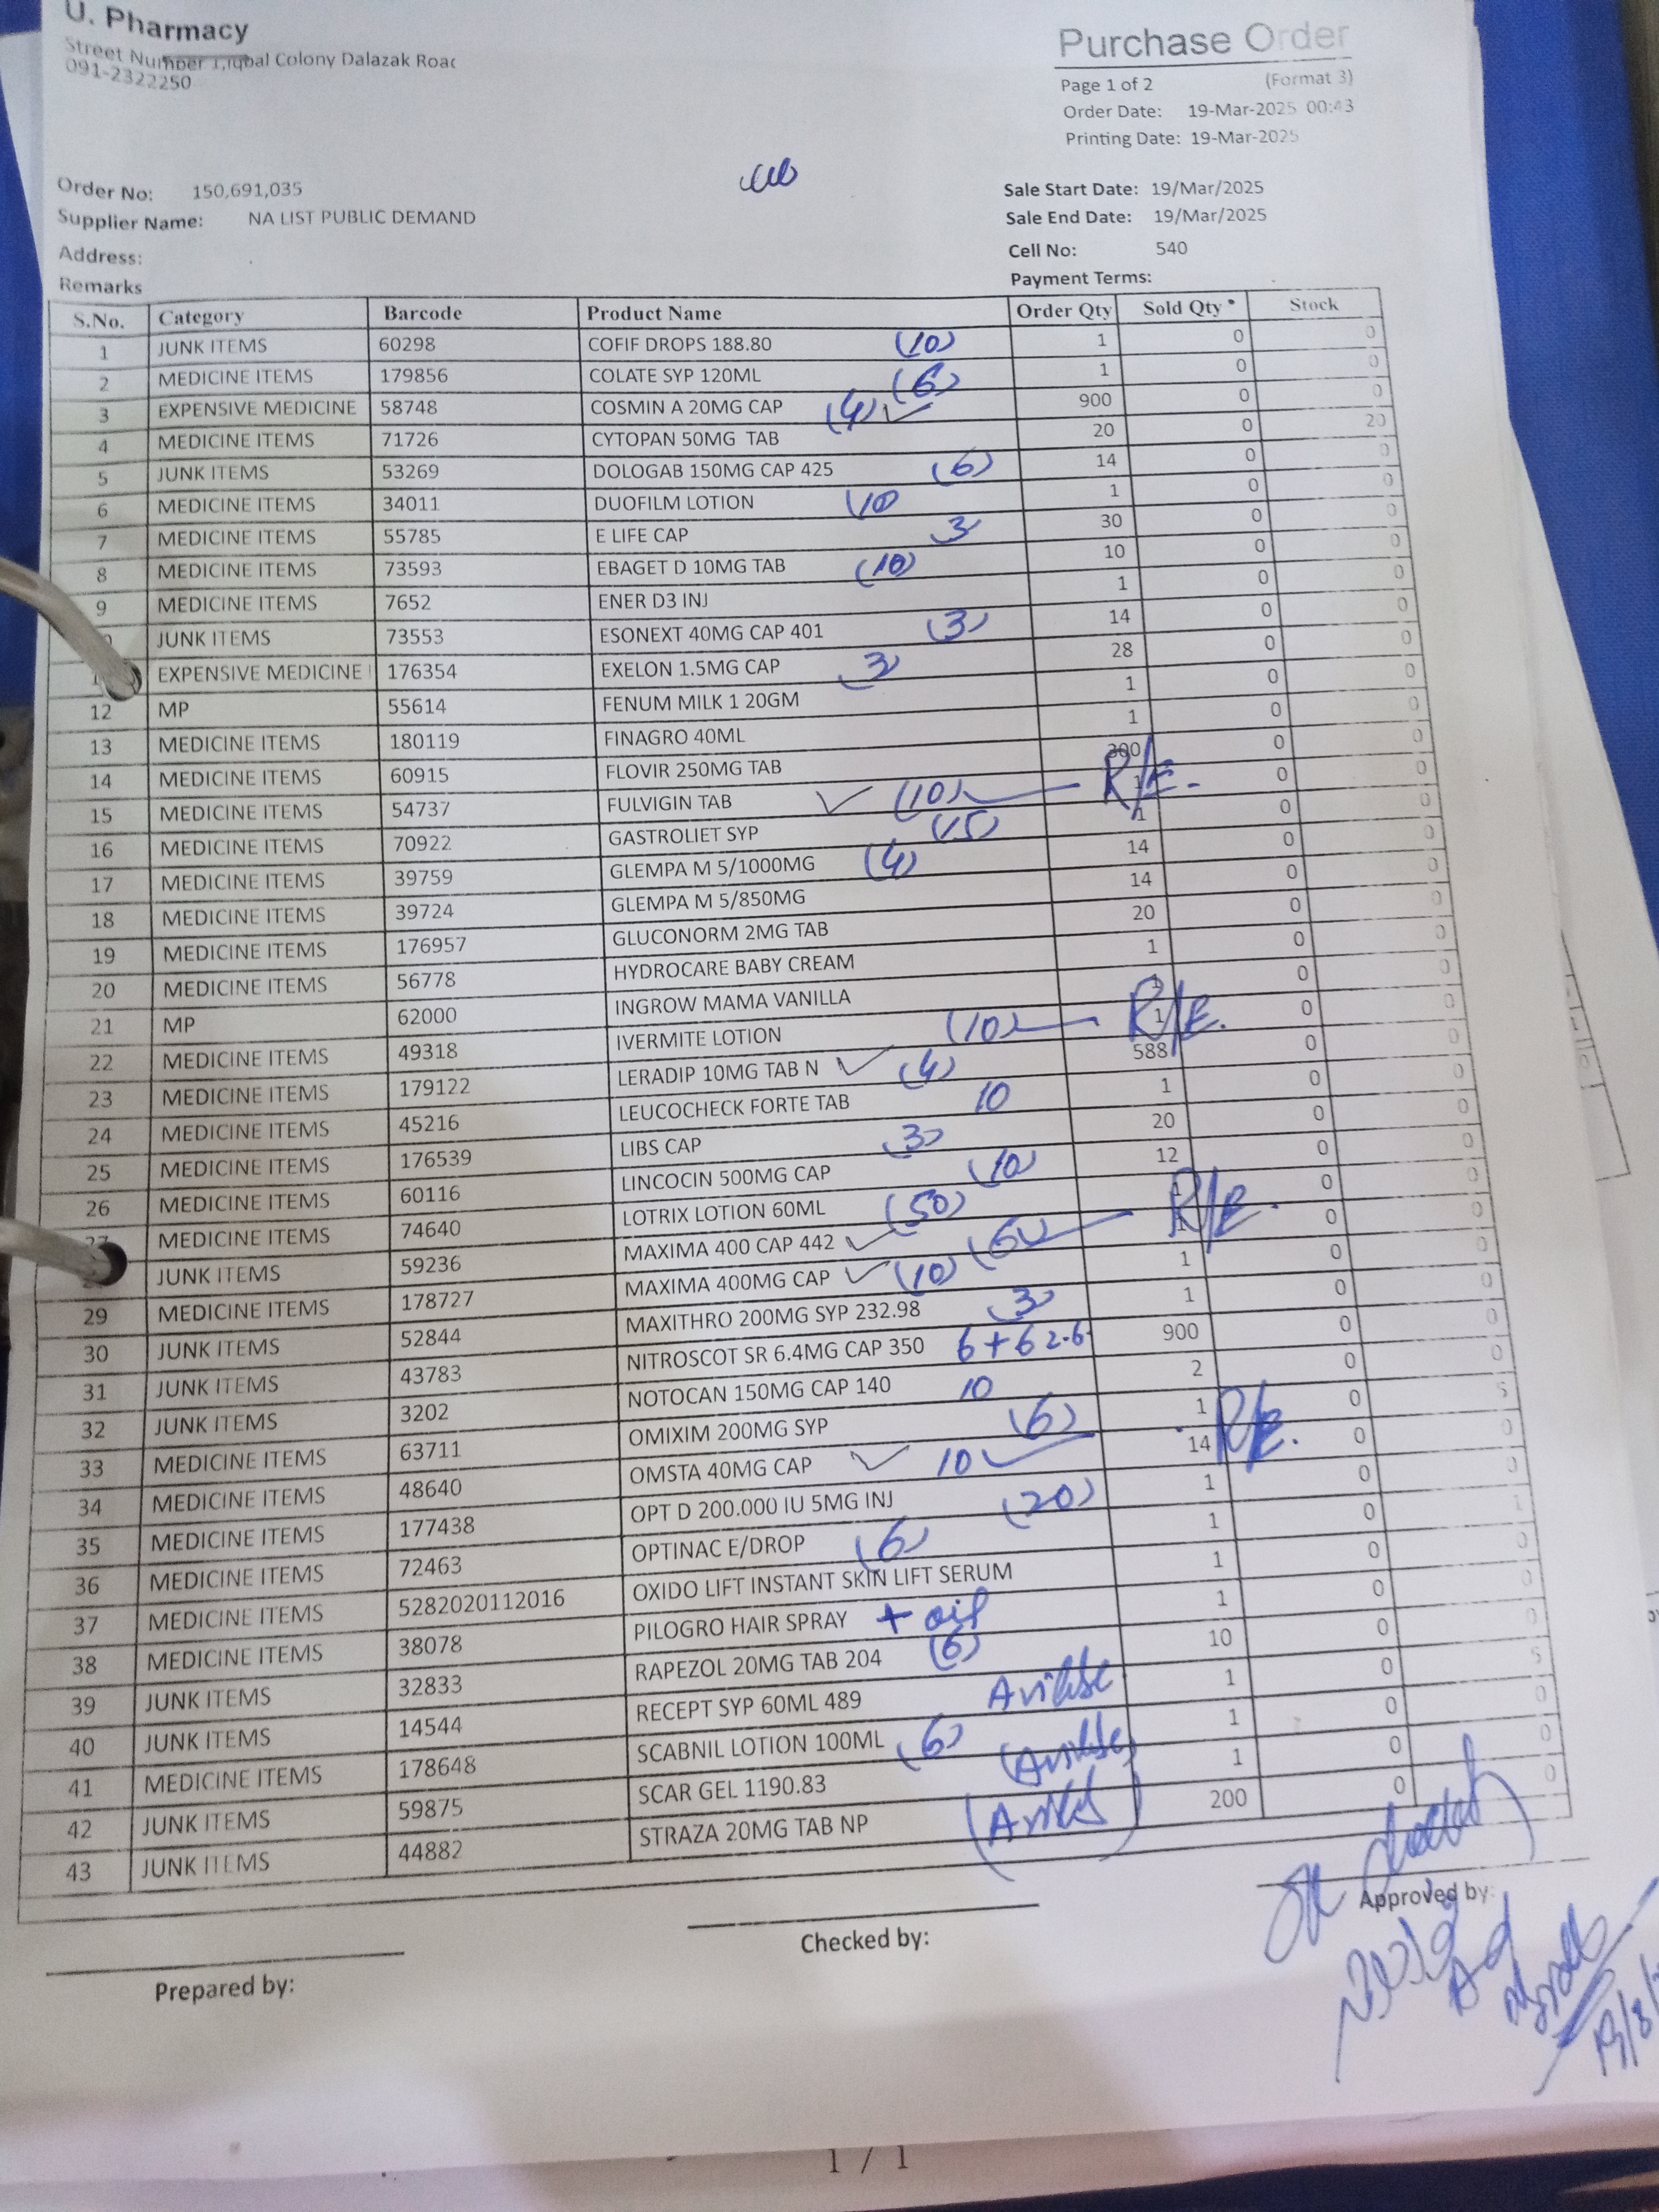 U. Pharmacy
Street Number 1,Iqbal Colony Dalazak Road
091-2322250
Purchase Order
Page 1 of 2 (Format 3)
Order Date: 19-Mar-2025 00:43
Printing Date: 19-Mar-2025
Order No: 150,691,035
Supplier Name: NA LIST PUBLIC DEMAND
Address:
Remarks
Sale Start Date: 19/Mar/2025
Sale End Date: 19/Mar/2025
Cell No: 540
Payment Terms:
S.No. Category Barcode Product Name Order Qty Sold Qty * Stock
1 JUNK ITEMS 60298 COFIF DROPS 188.80 (10) 1 0 0
2 MEDICINE ITEMS 179856 COLATE SYP 120ML (6) 1 0 0
3 EXPENSIVE MEDICINE 58748 COSMIN A 20MG CAP (4) ✓ 900 0 0
4 MEDICINE ITEMS 71726 CYTOPAN 50MG TAB 20 0 20
5 JUNK ITEMS 53269 DOLOGAB 150MG CAP 425 (6) 14 0 0
6 MEDICINE ITEMS 34011 DUOFILM LOTION (10) 1 0 0
7 MEDICINE ITEMS 55785 E LIFE CAP 3 30 0 0
8 MEDICINE ITEMS 73593 EBAGET D 10MG TAB (10) 10 0 0
9 MEDICINE ITEMS 7652 ENER D3 INJ 1 0 0
JUNK ITEMS 73553 ESONEXT 40MG CAP 401 (3) 14 0 0
EXPENSIVE MEDICINE 176354 EXELON 1.5MG CAP 3 28 0 0
12 MP 55614 FENUM MILK 1 20GM 1 0 0
13 MEDICINE ITEMS 180119 FINAGRO 40ML 1 0 0
14 MEDICINE ITEMS 60915 FLOVIR 250MG TAB 300 0 0
15 MEDICINE ITEMS 54737 FULVIGIN TAB ✓ (10) R/E. 1 0 0
16 MEDICINE ITEMS 70922 GASTROLIET SYP (15) 1 0 0
17 MEDICINE ITEMS 39759 GLEMPA M 5/1000MG (4) 14 0 0
18 MEDICINE ITEMS 39724 GLEMPA M 5/850MG 14 0 0
19 MEDICINE ITEMS 176957 GLUCONORM 2MG TAB 20 0 0
20 MEDICINE ITEMS 56778 HYDROCARE BABY CREAM 1 0 0
21 MP 62000 INGROW MAMA VANILLA 1 0 0
22 MEDICINE ITEMS 49318 IVERMITE LOTION (10) R/E. 1 0 0
23 MEDICINE ITEMS 179122 LERADIP 10MG TAB N ✓ (4) 588 0 0
24 MEDICINE ITEMS 45216 LEUCOCHECK FORTE TAB 10 1 0 0
25 MEDICINE ITEMS 176539 LIBS CAP (3) 20 0 0
26 MEDICINE ITEMS 60116 LINCOCIN 500MG CAP (10) 12 0 0
27 MEDICINE ITEMS 74640 LOTRIX LOTION 60ML (50) 1 0 0
JUNK ITEMS 59236 MAXIMA 400 CAP 442 ✓ R/E. 1 0 0
29 MEDICINE ITEMS 178727 MAXIMA 400MG CAP ✓ (10) 1 0 0
30 JUNK ITEMS 52844 MAXITHRO 200MG SYP 232.98 3 1 0 0
31 JUNK ITEMS 43783 NITROSCOT SR 6.4MG CAP 350 6+6 2.6 900 0 0
32 JUNK ITEMS 3202 NOTOCAN 150MG CAP 140 10 2 0 0
33 MEDICINE ITEMS 63711 OMIXIM 200MG SYP (6) 1 0 5
34 MEDICINE ITEMS 48640 OMSTA 40MG CAP ✓ 10 R/E. 14 0 0
35 MEDICINE ITEMS 177438 OPT D 200.000 IU 5MG INJ (20) 1 0 0
36 MEDICINE ITEMS 72463 OPTINAC E/DROP (6) 1 0 1
37 MEDICINE ITEMS 5282020112016 OXIDO LIFT INSTANT SKIN LIFT SERUM 1 0 0
38 MEDICINE ITEMS 38078 PILOGRO HAIR SPRAY + oil 1 0 0
39 JUNK ITEMS 32833 RAPEZOL 20MG TAB 204 (6) 10 0 0
40 JUNK ITEMS 14544 RECEPT SYP 60ML 489 1 0 5
41 MEDICINE ITEMS 178648 SCABNIL LOTION 100ML (6) 1 0 0
42 JUNK ITEMS 59875 SCAR GEL 1190.83 1 0 0
43 JUNK ITEMS 44882 STRAZA 20MG TAB NP 200 0 0
Prepared by:
Checked by:
Approved by:
1 / 1